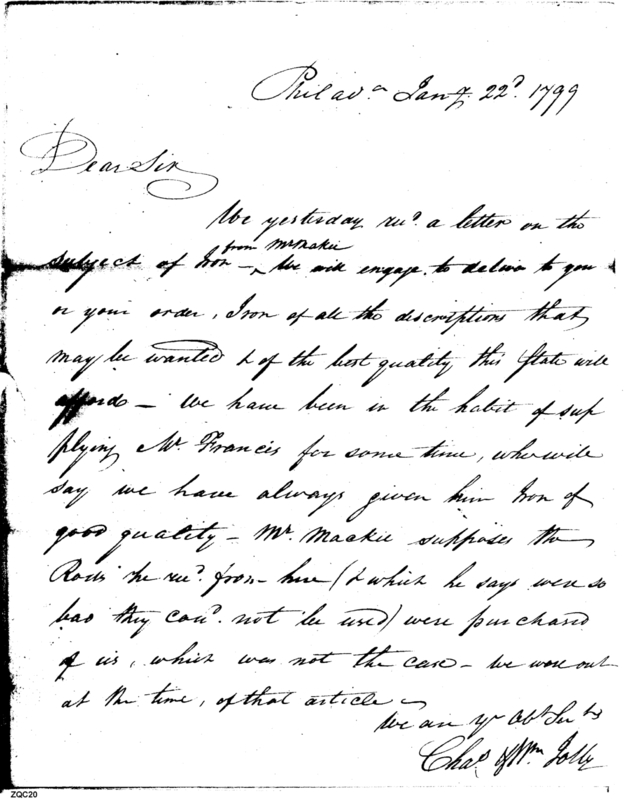 Philad.a Jany. 22d. 1799
Dear Sir
We yesterday recd. a letter on the
from Mr Mackie
subject of Iron - ^ We will engage to deliver to you
or your order, Iron of all the descriptions that
may be wanted & of the best quality this State will
afford - We have been in the habit of sup
plying Mr. Francis for some time, who will
say we have always given him Iron of
good quality - Mr. Mackie supposes the
Rods he recd. from here (& which he says were so
bad they coud. not be used) were purchased
of us, which was not the case - We were out
at the time, of that article -
We are yr Obt Servts
Chas. & Wm Jolly
ZQC20